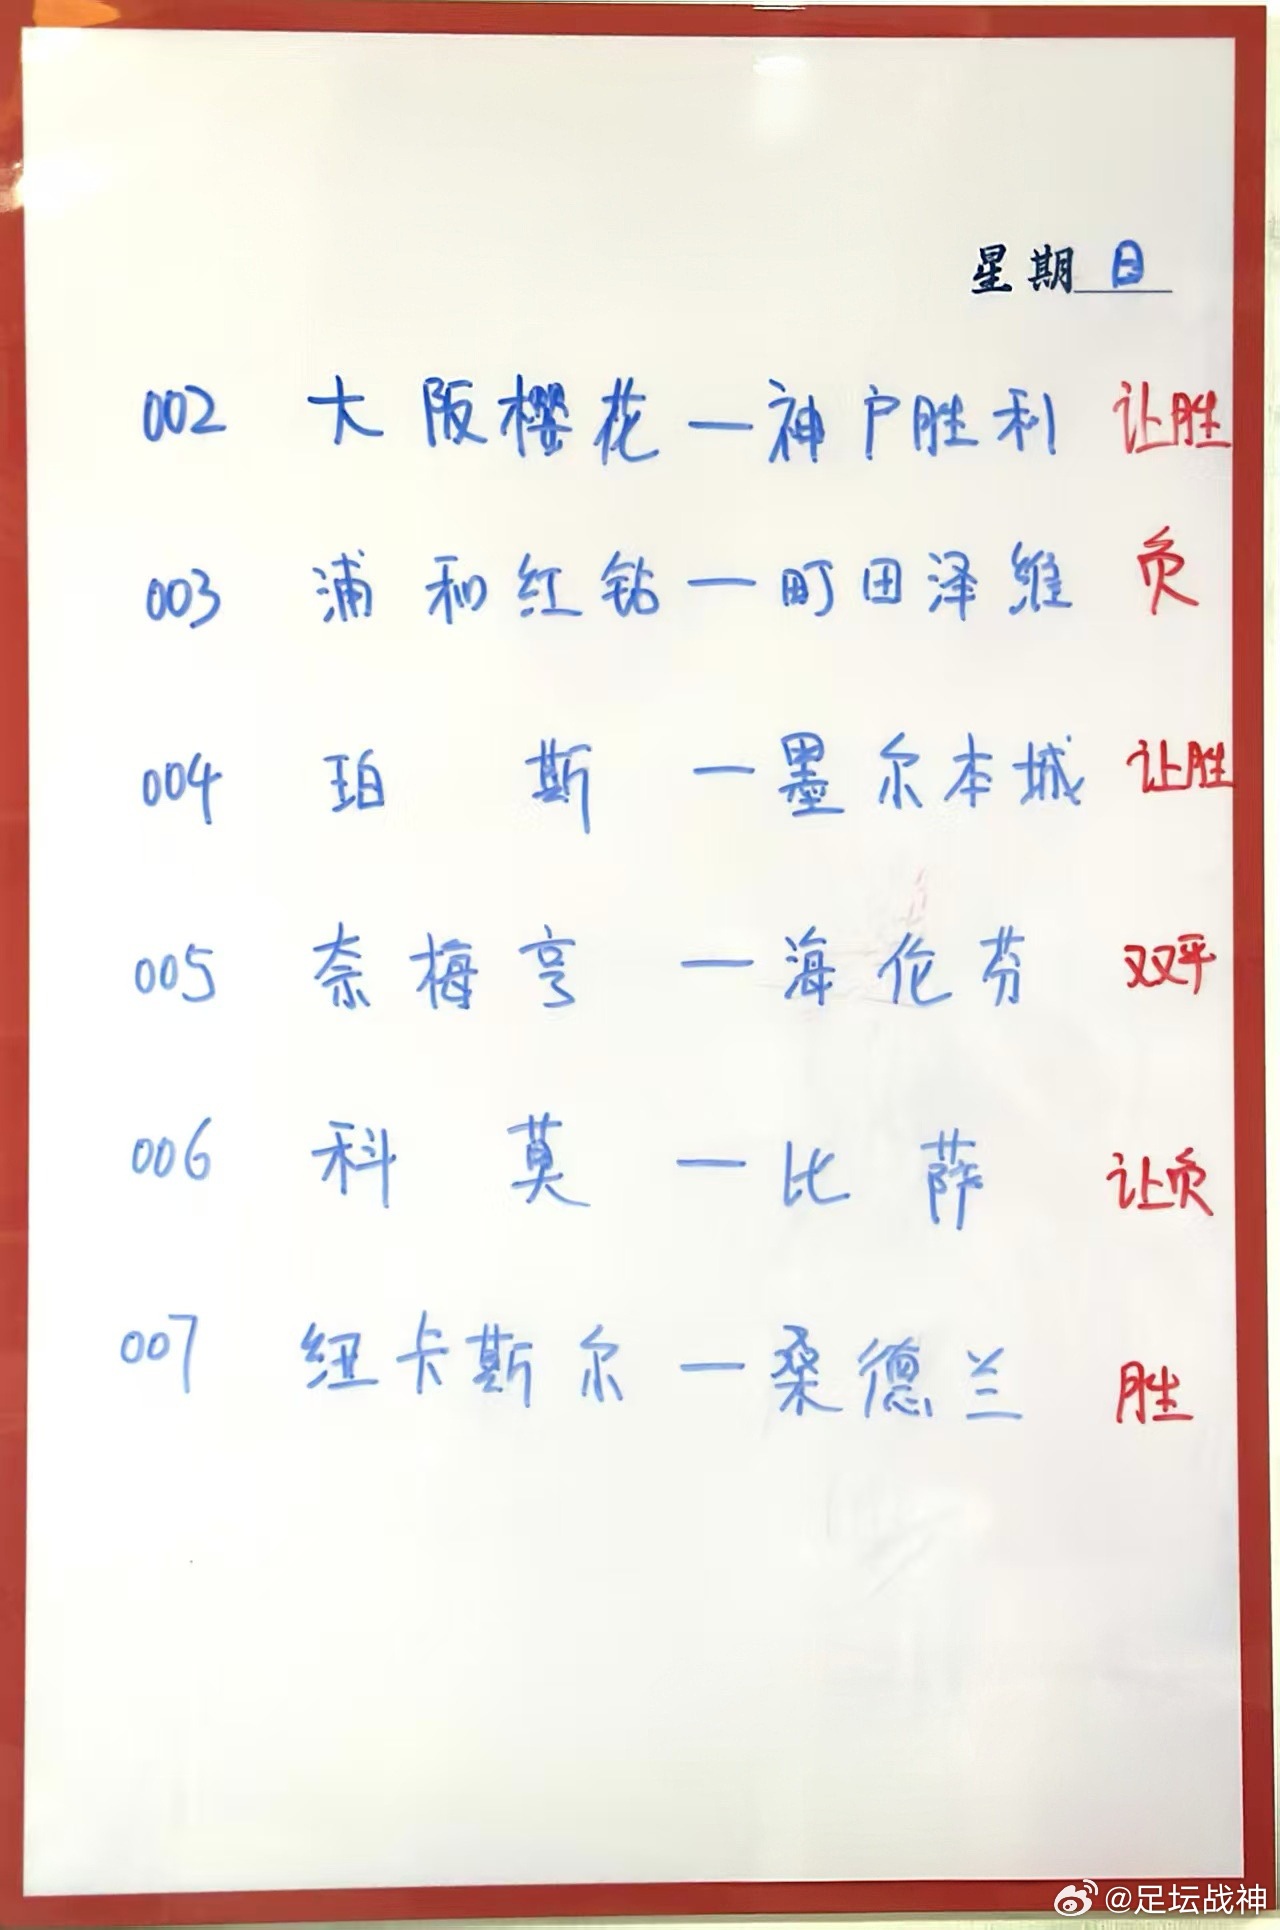 星期日
002 大阪樱花—神户胜利 让胜
003 浦和红钻—町田泽维 负
004 珀斯—墨尔本城 让胜
005 奈梅亨—海伦芬 双平
006 科莫—比萨 让负
007 纽卡斯尔—桑德兰 胜
@足坛战神